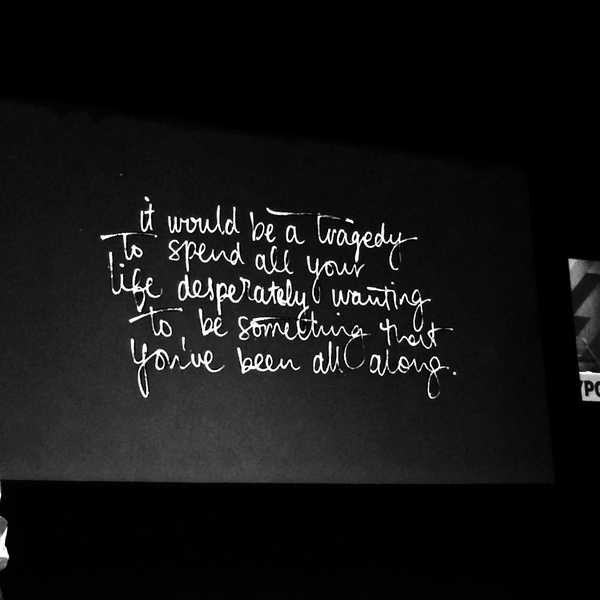 it would be a tragedy
to spend all your
life desperately wanting
to be something that
you've been all along.
YPO